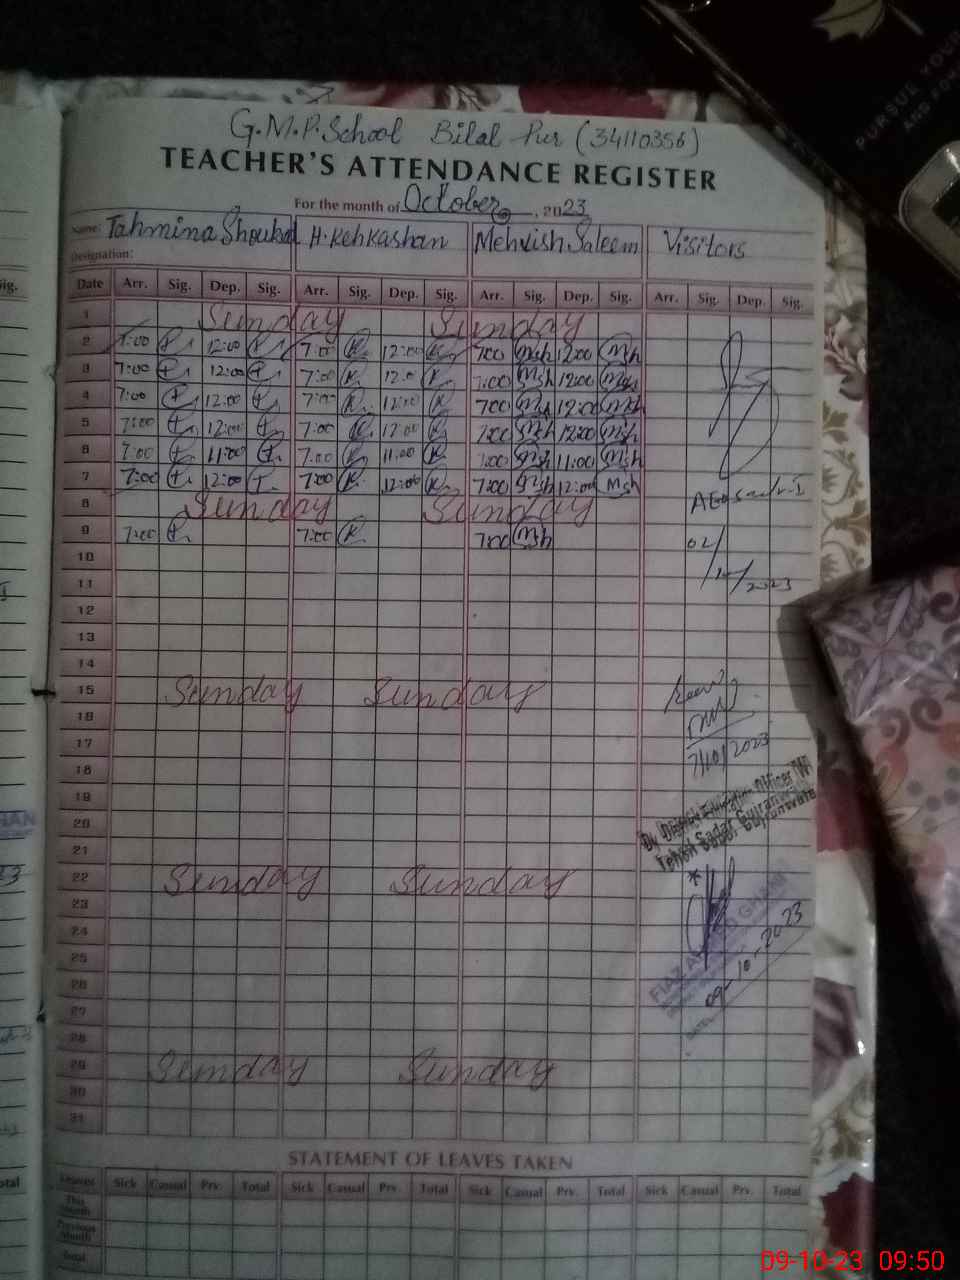 G.M.P.School Bilal Pur (34110356)
TEACHER'S ATTENDANCE REGISTER
For the month of October, 2023
Name: Tahmina Shoukat H.Kehkashan Mehvish Saleem Visitors
Designation:
Date Arr. Sig. Dep. Sig. Arr. Sig. Dep. Sig. Arr. Sig. Dep. Sig. Arr. Sig. Dep. Sig.
1 Sunday Sunday
2 7:00 12:00 7:00 12:00 7:00 Msh 12:00 Msh
3 7:00 12:00 7:00 12:00 7:00 Msh 12:00 Msh
4 7:00 12:00 7:00 12:00 7:00 Msh 12:00 Msh
5 7:00 12:00 7:00 12:00 7:00 Msh 12:00 Msh
6 7:00 11:00 7:00 11:00 7:00 Msh 11:00 Msh
7 7:00 12:00 7:00 12:00 7:00 Msh 12:00 Msh
8 Sunday Sunday
9 7:00 7:00 7:00 Msh
02/10/2023
10
11
12
13
14
15 Sunday Sunday
16
17
7/10/2023
18
19
20
Dy District Education Officer
21
Tehsil Sadar Gujranwala
22 Sunday Sunday
23
24
FIAZ AHMED GHANI
25
09-10-2023
26
27
28
29 Sunday Sunday
30
31
STATEMENT OF LEAVES TAKEN
Leaves Sick Casual Prv. Total Sick Casual Prv. Total Sick Casual Prv. Total Sick Casual Prv. Total
This Month
Previous Month
Total
PURSUE YOUR
09-10-23 09:50